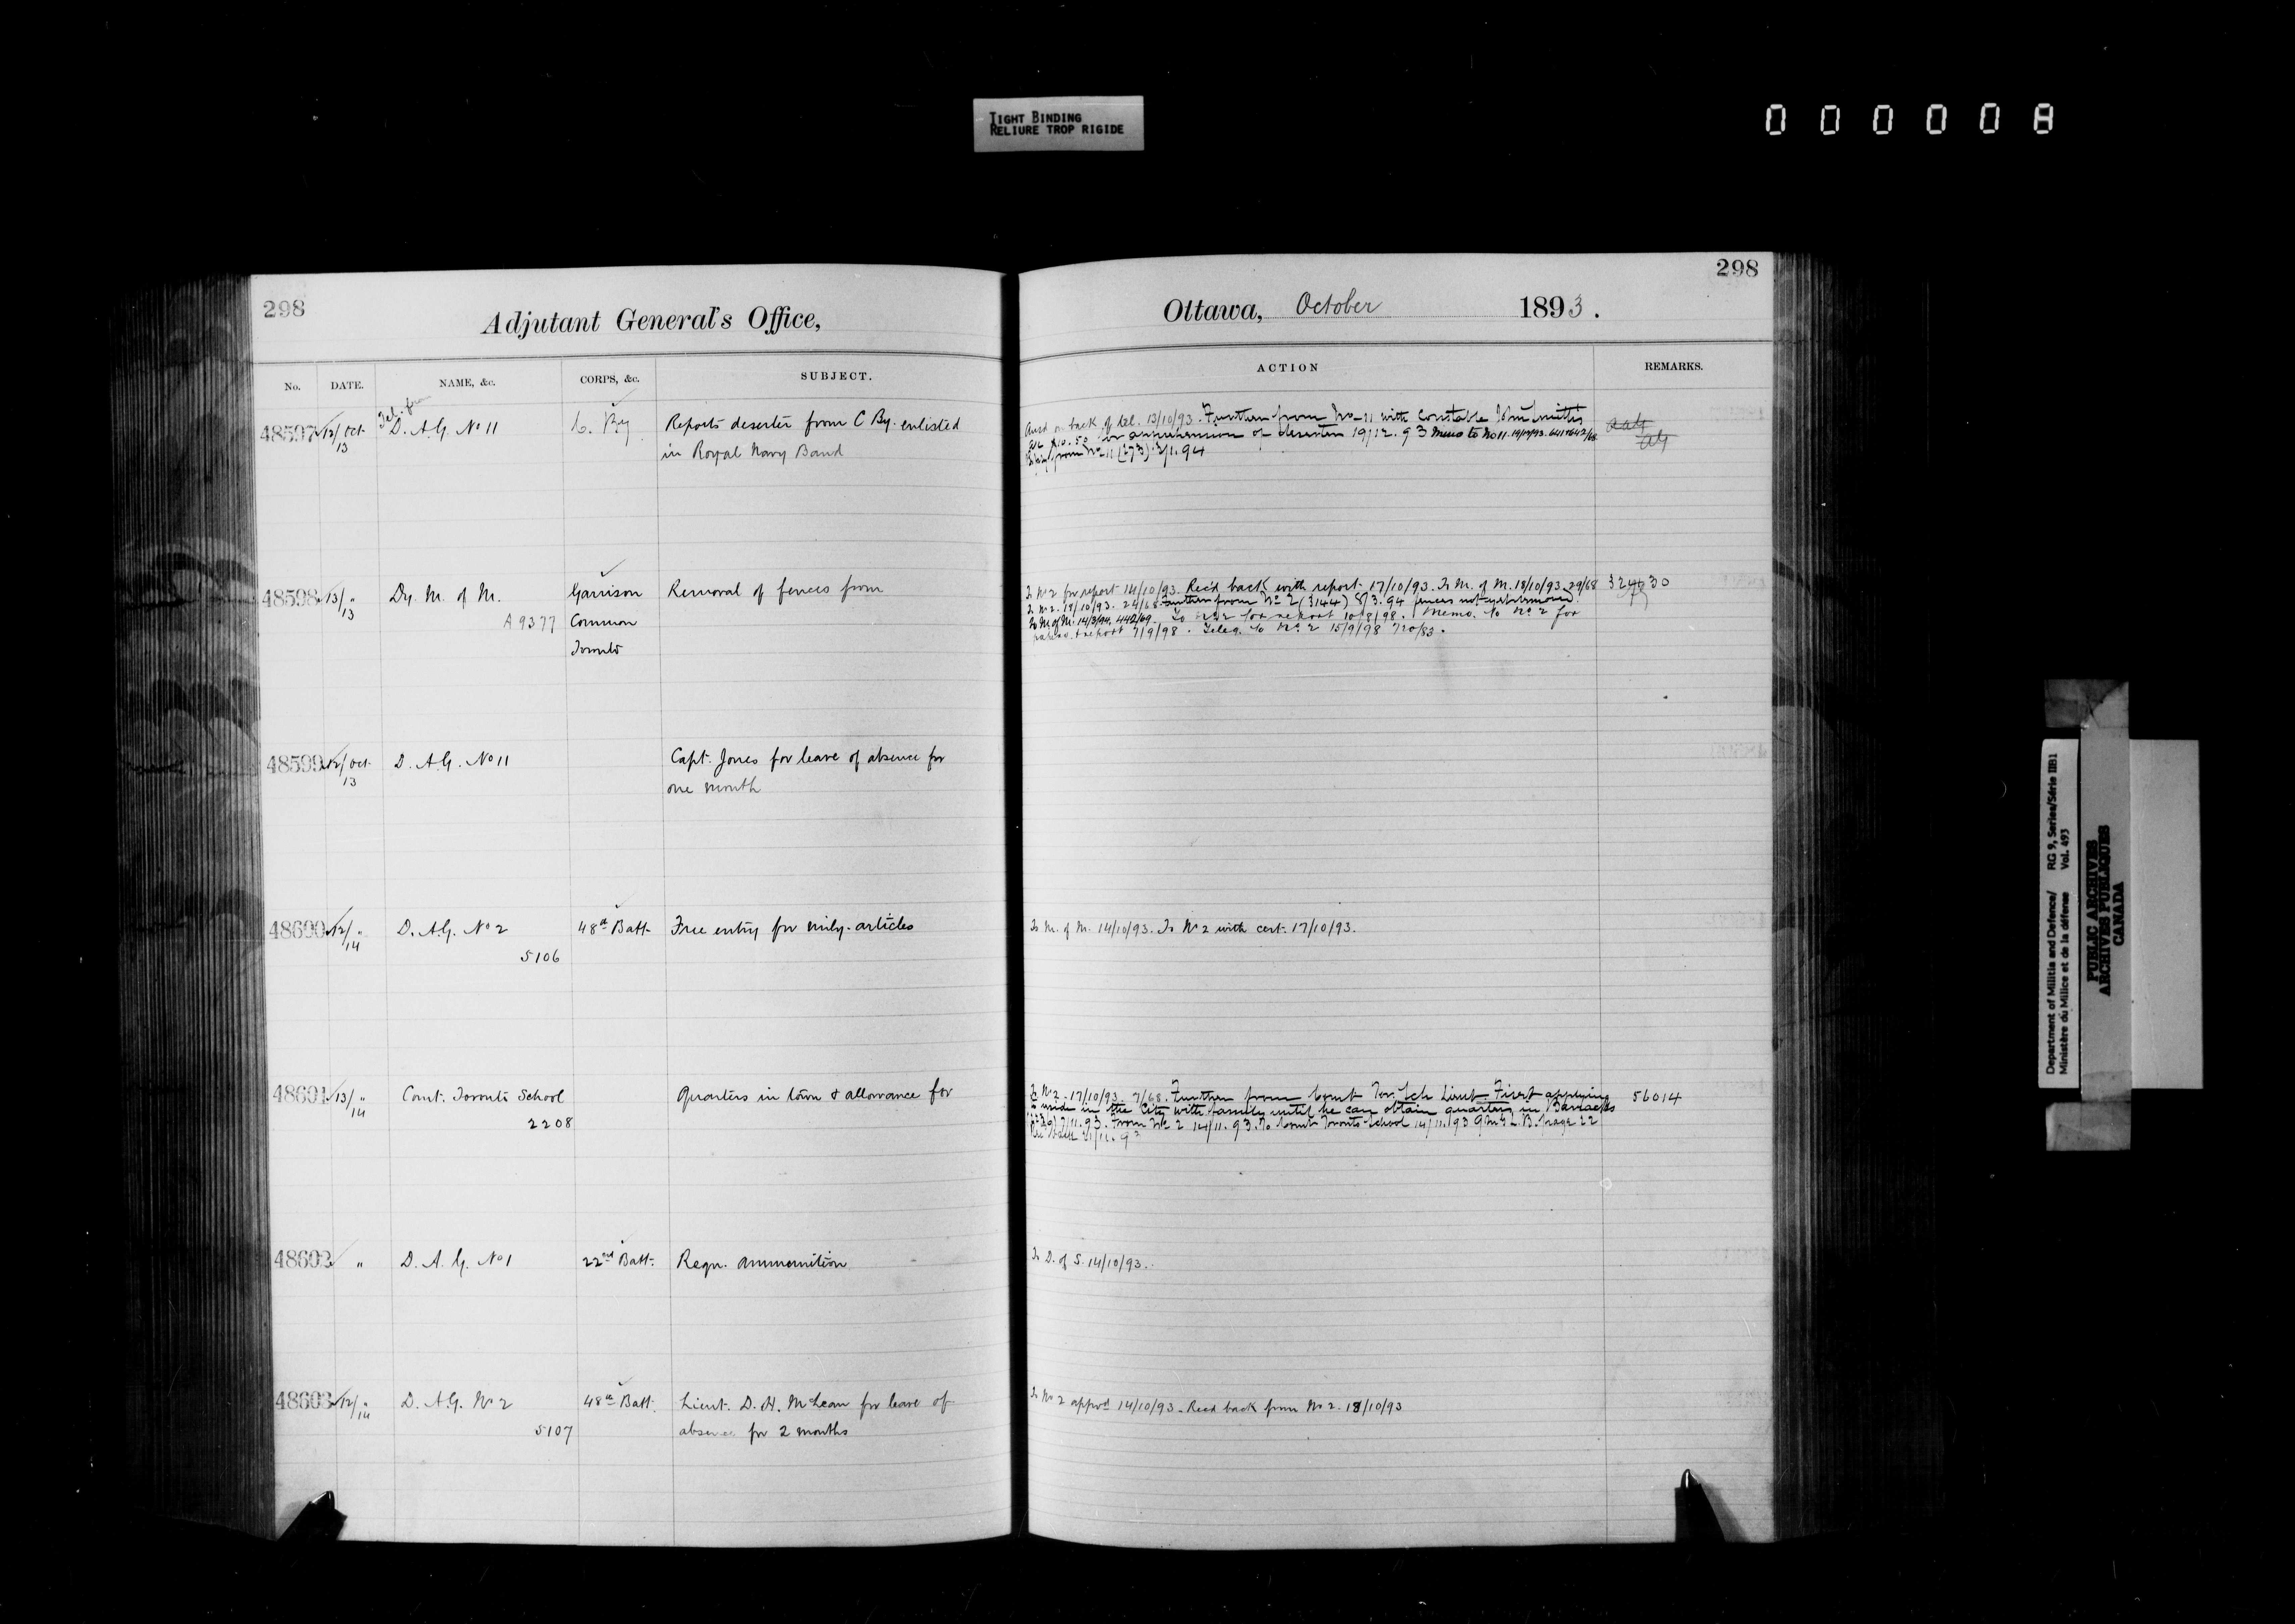 TIGHT BINDING
RELIURE TROP RIGIDE
000008
298
Adjutant General's Office,
No. DATE. NAME, &c. CORPS, &c. SUBJECT.
48597 12/13 Oct Tel. from D. A. G. No 11 C. By Reports deserter from C By. enlisted
in Royal Navy Band
48598 13/13 " Dy. M. of M. Garrison Removal of fences from
A 9377 Common
Toronto
48599 12/13 Oct D. A. G. No 11 Capt. Jones for leave of absence for
one month
48600 12/14 " D. A. G. No 2 48th Batt. Free entry for mily. articles
5106
48601 13/14 " Comt. Toronto School Quarters in town & allowance for
2208
48602 " D. A. G. No 1 22nd Batt. Reqn. ammunition
48603 12/14 " D. A. G. No 2 48th Batt. Lieut. D. H. McLean for leave of
5107 absence for 2 months
298
Ottawa, October 1893.
ACTION REMARKS.
Ansd on back of tel. 13/10/93. Further from No 11 with Constable John
apprehension of deserter 19/12.93 Memo to No 11.
from No 11 94
To No 2 for report 14/10/93. Recd back with report 17/10/93. To M. of M. 18/10/93. 29/68 32430
To No 2. 19/10/93. 24/68. Further from No 2 (3144) 8/3.94 fences not yet removed.
To M of M. 14/3/94. 442/69. To No 2 for report 10/8/98. Memo. to No 2 for
report 7/9/98. Teleg. to No 2 15/9/98 720/83.
To M. of M. 14/10/93. To No 2 with cert. 17/10/93.
To No 2. 17/10/93. 7/68. Further from Comt Tor. Sch Lieut. applying 56014
in the City with family until he can obtain quarters in Barracks
11.93. From No 2 14/11.93. To Comt Toronto School 14/11.93 L.B. page 22
To D. of S. 14/10/93.
To No 2 approd 14/10/93. Recd back from No 2. 18/10/93
Department of Militia and Defence/ RG 9, Series/Série IIB1
Ministère du Milice et de la défense Vol. 493
PUBLIC ARCHIVES
ARCHIVES PUBLIQUES
CANADA